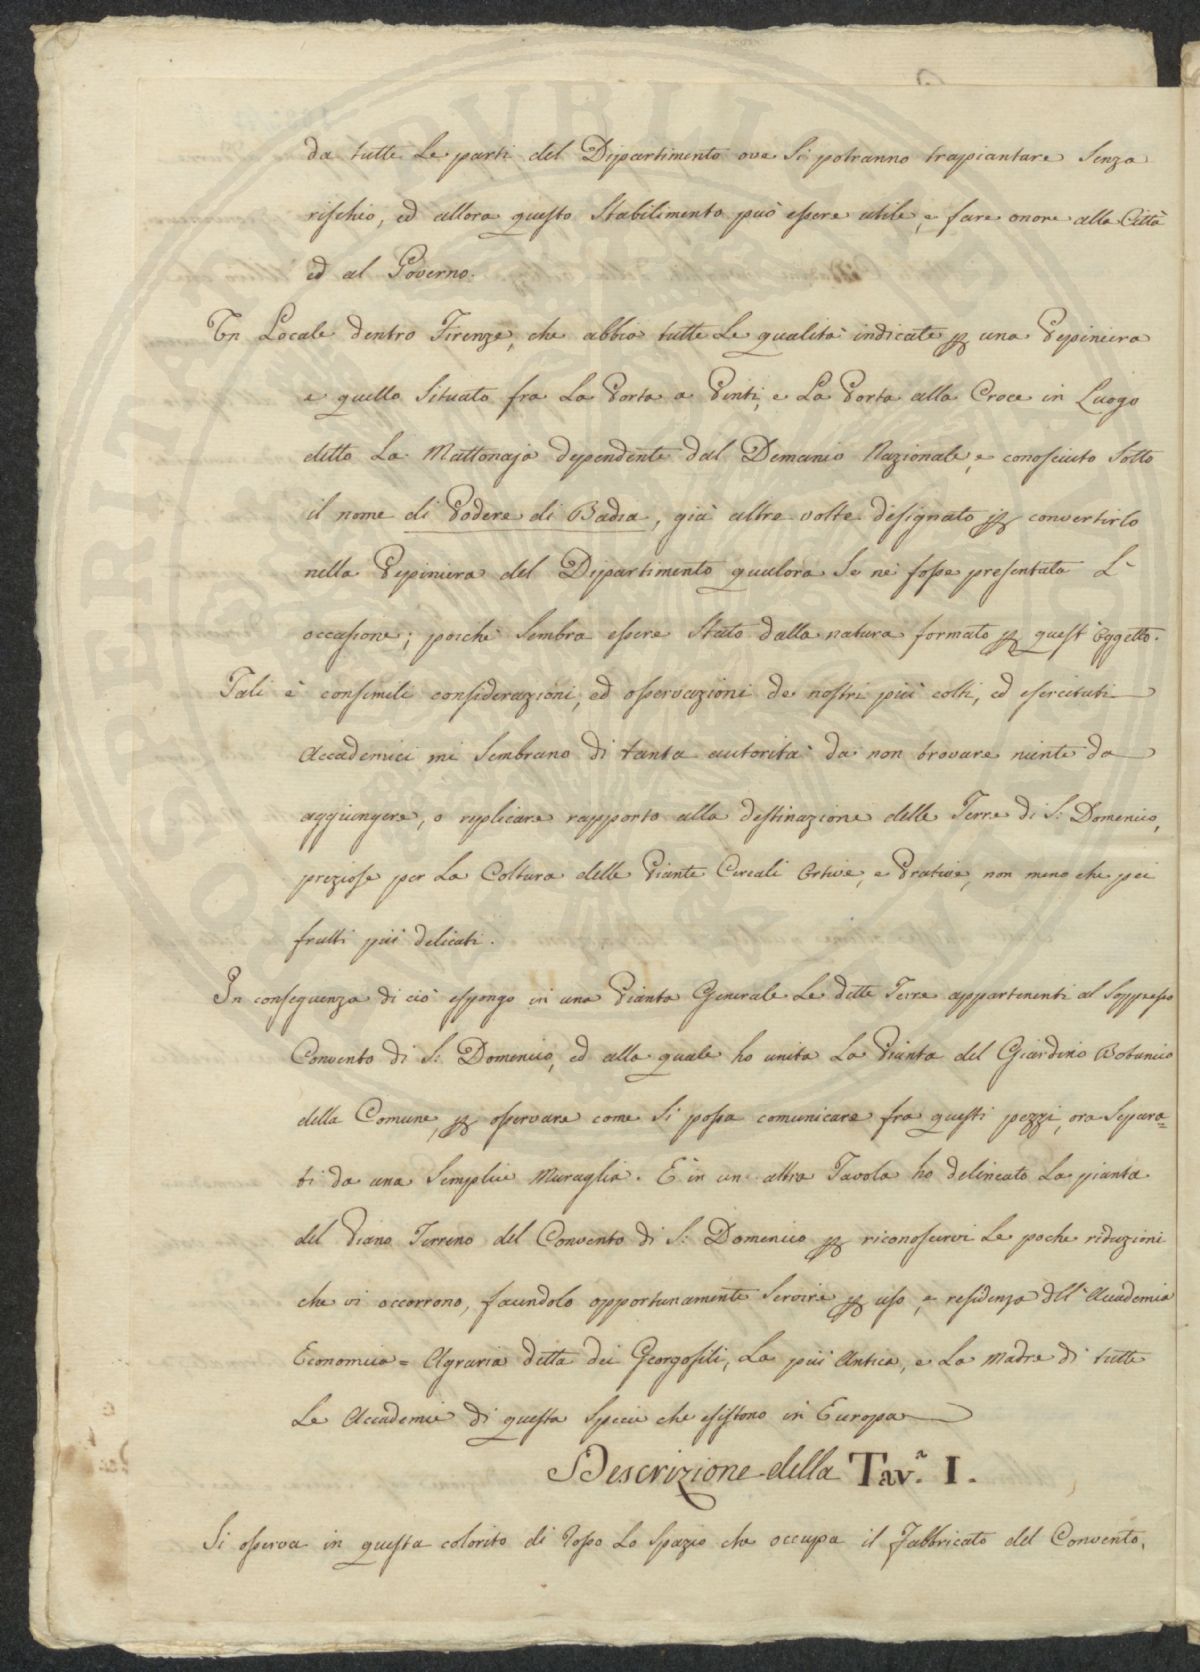 da tutte le parti del Dipartimento ove si potranno trapiantare senza
rischio, ed allora questo Stabilimento può essere utile, e fare onore alla Città
ed al Governo.
Un Locale dentro Firenze, che abbia tutte le qualità indicate per una Pepiniera
e quello situato fra la Porta a Pinti, e la Porta alla Croce in Luogo
detto la Mattonaja dependente dal Demanio Nazionale, e conosciuto sotto
il nome di Podere di Badia, già altre volte designato per convertirlo
nella Pepiniera del Dipartimento qualora se ne fosse presentata l'
occasione; poichè sembra essere stato dalla natura formato per quest'oggetto.
Tali è consimili considerazioni, ed osservazioni de nostri più colti, ed esercitati
Accademici mi sembrano di tanta autorità da non trovare niente da
aggiungere, o replicare rapporto alla destinazione delle Terre di S: Domenico,
preziose per la Coltura delle Piante Cereali Ortive, e Prative, non meno che pei
frutti più delicati.
In conseguenza di ciò espongo in una Pianta Generale le dette Terre appartenenti al soppresso
Convento di S: Domenico, ed alla quale ho unita la Pianta del Giardino Botanico
della Comune, per osservare come si possa comunicare fra questi pezzi, ora separa=
ti da una semplice muraglia. E in un altra Tavola ho delineato la pianta
del Piano Terreno del Convento di S: Domenico per riconoscervi le poche riduzioni
che vi occorrono, facendolo opportunamente servire per uso, e residenza dll'Accademia
Economico = Agraria detta dei Georgofili, la più antica, e la madre di tutte
le Accademie di questa specie che esistono in Europa
Descrizione della Tav.ª I.
Si osserva in questa colorito di rosso lo spazio che occupa il Fabbricato del Convento,